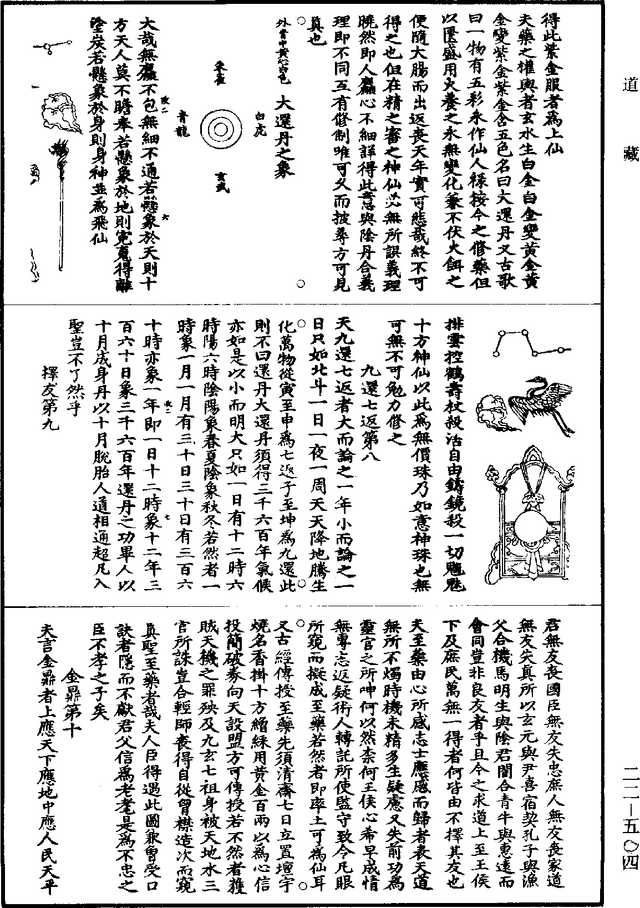 道藏
得此紫金服者為上仙
夫藥之權輿者玄水生白金白金變黃金黃
金變紫金紫金含五色名曰大還丹又古歌
曰一物有五彩永作仙人祿按今之修藥但
以匱盛用火養之永無變化兼不伏火餌之
便隨大腸而出返喪天年實可悲哉終不可
得之也但在精之審之神仙必無所誤義理
曉然即人麤心不細詳得此意與陰丹合義
理即不同互有修制唯可久而披尋方可見
真也
大還丹之象
外青中黃心白色
朱雀
白虎
青龍
玄武
大哉無麤不包無細不通若懸象於天則十
方天人莫不瞻奉若懸象於地則冤魂得離
塗炭若懸象於身則身神並為飛仙
排雲控鶴壽杖殺活自由鑄鏡殺一切魑魅
十方神仙以此為無價珠乃如意神珠也無
可無不可勉力修之
九還七返第八
天九還七返者大而論之一年小而論之一
日只如北斗一日一夜一周天天降地騰生
化萬物從寅至申為七返子至坤為九還此
則不曰還丹大還丹須得三千六百年氣候
亦如是以小而明大只如一日有十二時六
時陽六時陰陽象春夏陰象秋冬若然者一
時象一月一月有三十日三十日有三百六
十時亦象一年即一日十二時象十二年三
百六十日象三千六百年還丹之功畢人以
十月成身丹以十月脫胎人道相通超凡入
聖豈不了然乎
擇友第九
君無友喪國臣無友失忠庶人無友喪家道
無友失真所以玄元與尹喜宿契孔子與漁
父合機馬明生與陰君闇合青牛與惠遠而
會同豈非良友者乎且今之求道上至王侯
下及庶民萬無一得者何皆由不擇其友也
夫至藥由心所感志士應感而歸者表天道
無所不燭時機未精多生疑慮又失前功為
靈官之所呻何以然柰何王侯心希早成情
無專志返疑術人轉託所使監守致令凡眼
所窺而擬成至藥若然者即率土可為仙耳
又古經傳授至藥先須清齋七日立置壇宇
燒名香掛十方繒綵用黃金百兩以為心信
投簡破券向天設盟方可傳授若不然者獲
賊天機之罪殃及九玄七祖身被天地水三
官所誅豈合輕師喪得自從曾襟造次而窺
真聖至藥者哉夫人臣得遇此圖兼曾受口
訣者隱而不獻君父信為老耄是為不忠之
臣不孝之子矣
金鼎第十
夫言金鼎者上應天下應地中應人民天平
二二—五〇四